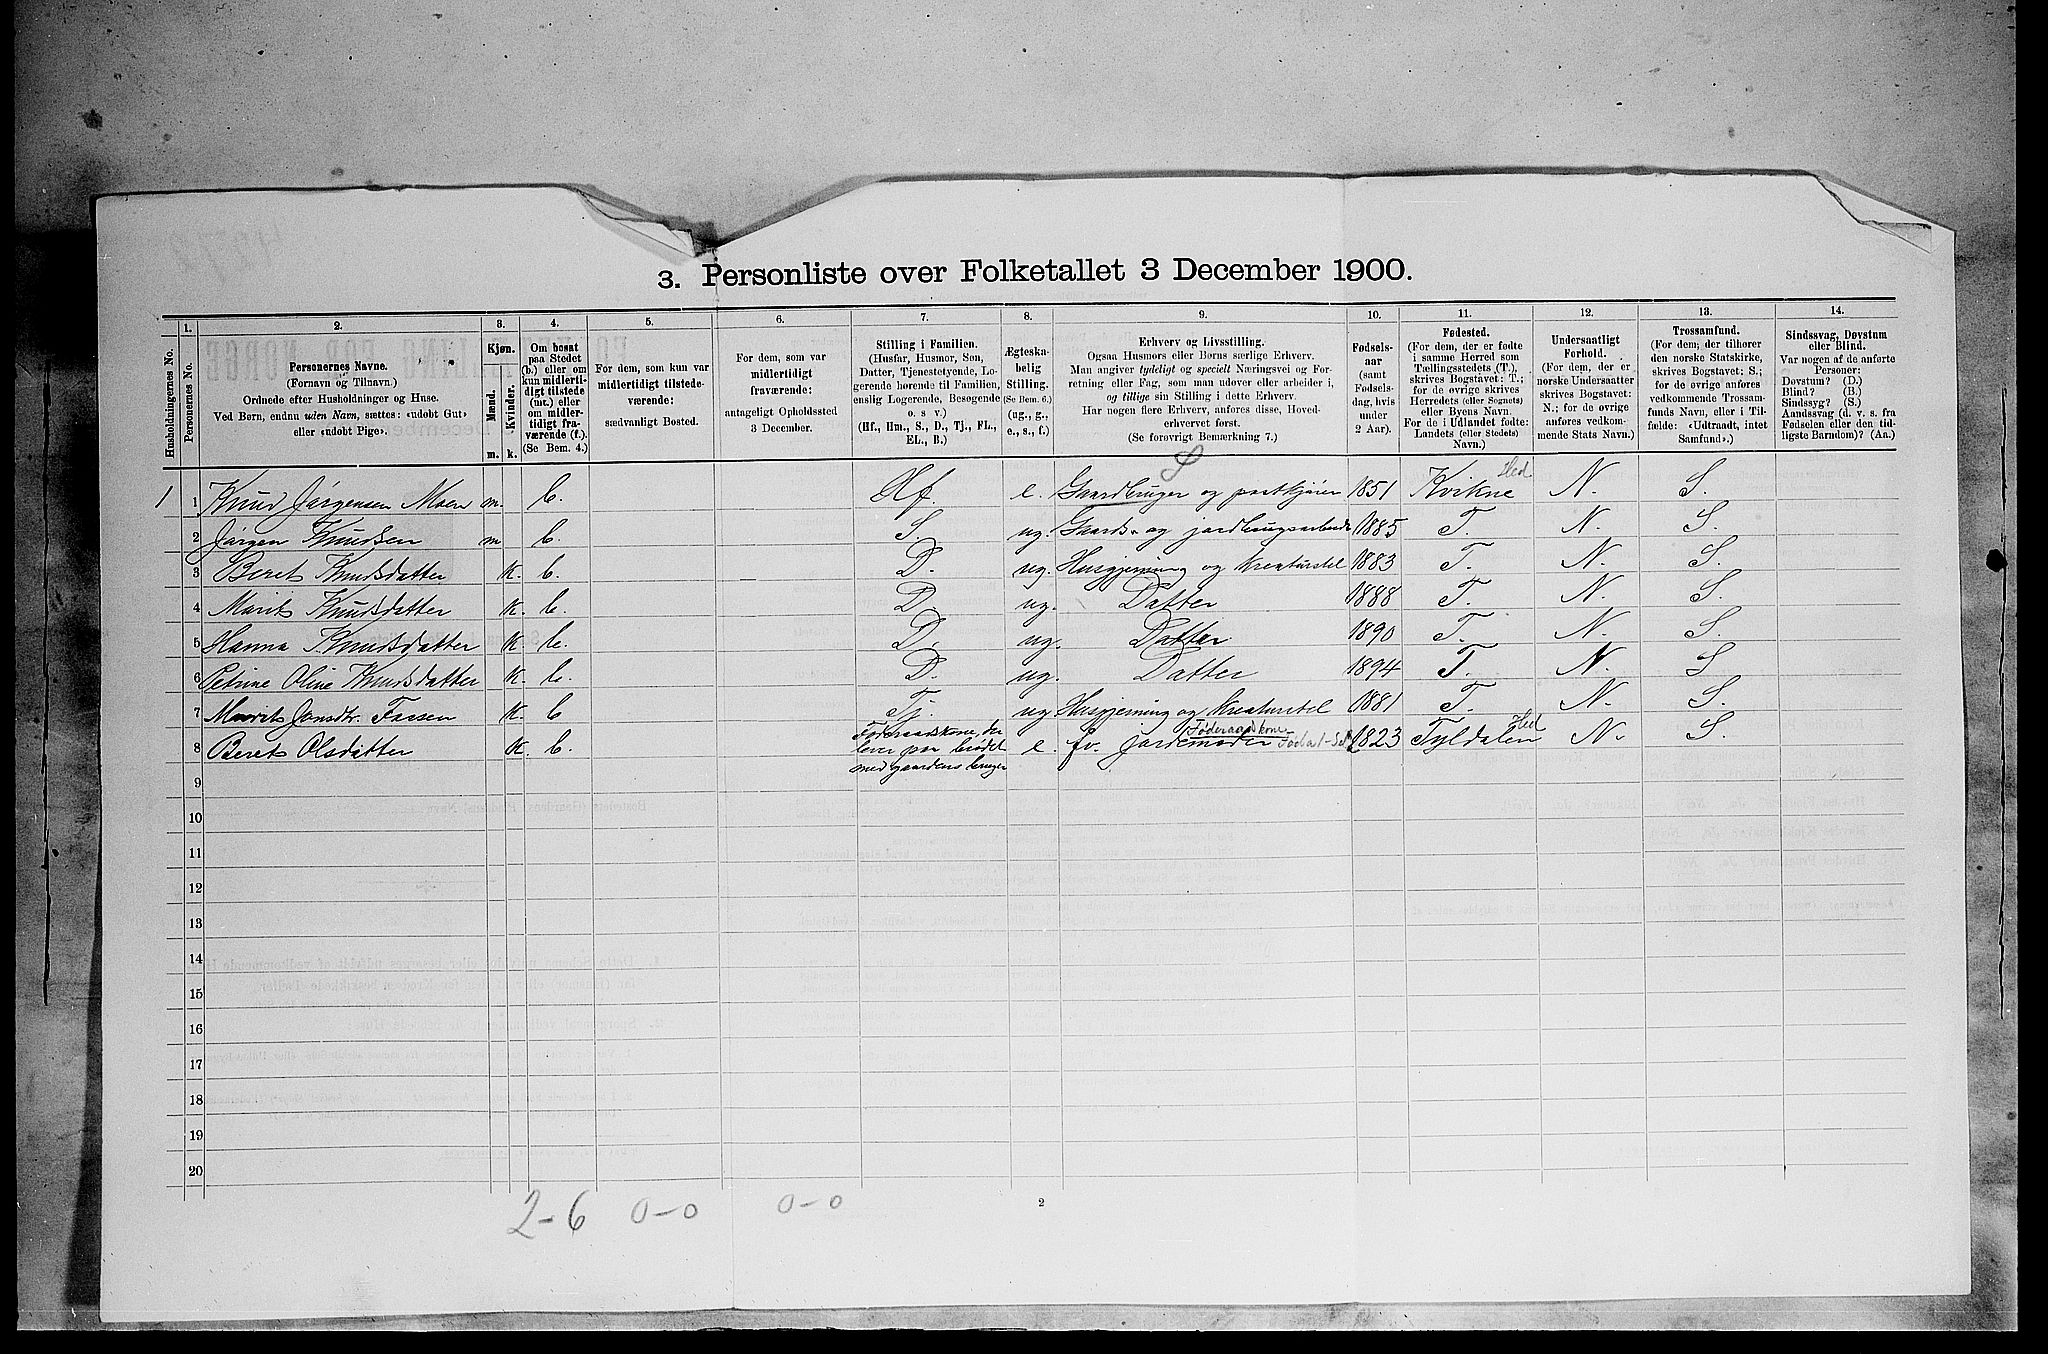 3. Personliste over Folketallet 3 December 1900.
1. 2. 3. 4. 5. 6. 7. 8. 9. 10. 11. 12. 13. 14.
Husholdningernes No.
Personernes No.
Personernes Navne.
(Fornavn og Tilnavn.)
Ordnede efter Husholdninger og Huse.
Ved Børn, endnu uden Navn, sættes: «udøbt Gut»
eller «udøbt Pige».
Kjøn.
Mænd.
Kvinder.
m. k.
Om bosat
paa Stedet
(b.) eller om
kun midlerti-
digt tilstede
(mt.) eller
om midler-
tidigt fra-
værende (f.).
(Se Bem. 4.)
For dem, som kun var
midlertidigt tilstede-
værende:
sædvanligt Bosted.
For dem, som var
midlertidigt
fraværende:
antageligt Opholdssted
3 December.
Stilling i Familien.
(Husfar, Husmor, Søn,
Datter, Tjenestetyende, Lo-
gerende hørende til Familien,
enslig Logerende, Besøgende
o. s v.)
(Hf., Hm., S., D., Tj., FL.,
EL., B.)
Ægteska-
belig
Stilling.
(Se Bem. 6.)
(ug., g.,
e., s., f.)
Erhverv og Livsstilling.
Ogsaa Husmors eller Børns særlige Erhverv.
Man angiver tydeligt og specielt Næringsvei og For-
retning eller Fag, som man udøver eller arbeider i,
og tillige sin Stilling i dette Erhverv.
Har nogen flere Erhverv, anføres disse, Hoved-
erhvervet først.
(Se forøvrigt Bemærkning 7.)
Fødsels-
aar
(samt
Fødsels-
dag, hvis
under
2 Aar).
Fødested.
(For dem, der er fødte
i samme Herred som
Tællingsstedets (T.),
skrives Bogstavet: T.;
for de øvrige skrives
Herredets (eller Sognets)
eller Byens Navn.
For de i Udlandet fødte:
Landets (eller Stedets)
Navn.)
Undersaatligt
Forhold.
(For dem, der er
norske Undersaatter
skrives Bogstavet:
N.; for de øvrige
anføres vedkom-
mende Stats Navn.)
Trossamfund.
(For dem, der tilhører
den norske Statskirke,
skrives Bogstavet: S.;
for de øvrige anføres
vedkommende Trossam-
funds Navn, eller i Til-
fælde: «Udtraadt, intet
Samfund».)
Sindssvag, Døvstum
eller Blind.
Var nogen af de anførte
Personer:
Døvstum? (D.)
Blind? (B.)
Sindssyg? (S.)
Aandssvag (d. v. s. fra
Fødselen eller den tid-
ligste Barndom)? (Aa.)
S
Hed
1 1 Knud Jörgensen Moen m. b. Hf. e. Gaardbruger og postkjører 1851 Kvikne N. S.
2 Jörgen Knudsen m b. S ug. Gaards- og jordbrugsarbeide 1885 T. N. S.
3 Beret Knudsdatter K. b. D. ug. Husgjerning og Kreaturstel 1883 T. N. S.
4 Marit Knudsdatter K. b. D. ug. Datter 1888 T. N. S.
5 Hanna Knudsdatter K. b. D. ug. Datter 1890 T. N. S.
6 Petrine Oline Knudsdatter K. b. D. ug. Datter 1894 T. N. S
7 Marit Jonsdtr. Fassen K. b Tj. ug Husgjerning og Kreaturstel 1881 T. N. S.
Föderaadskone, der Föderaadskone Hed
8 Beret Olsdatter K. b. lever paa brödet e. fv. Jordemoder 1823 Tyldalen N. S.
med gaardens bruger
9
10
11
12
13
14
15
16
17
18
19
20
2-6 0-0 0-0
2